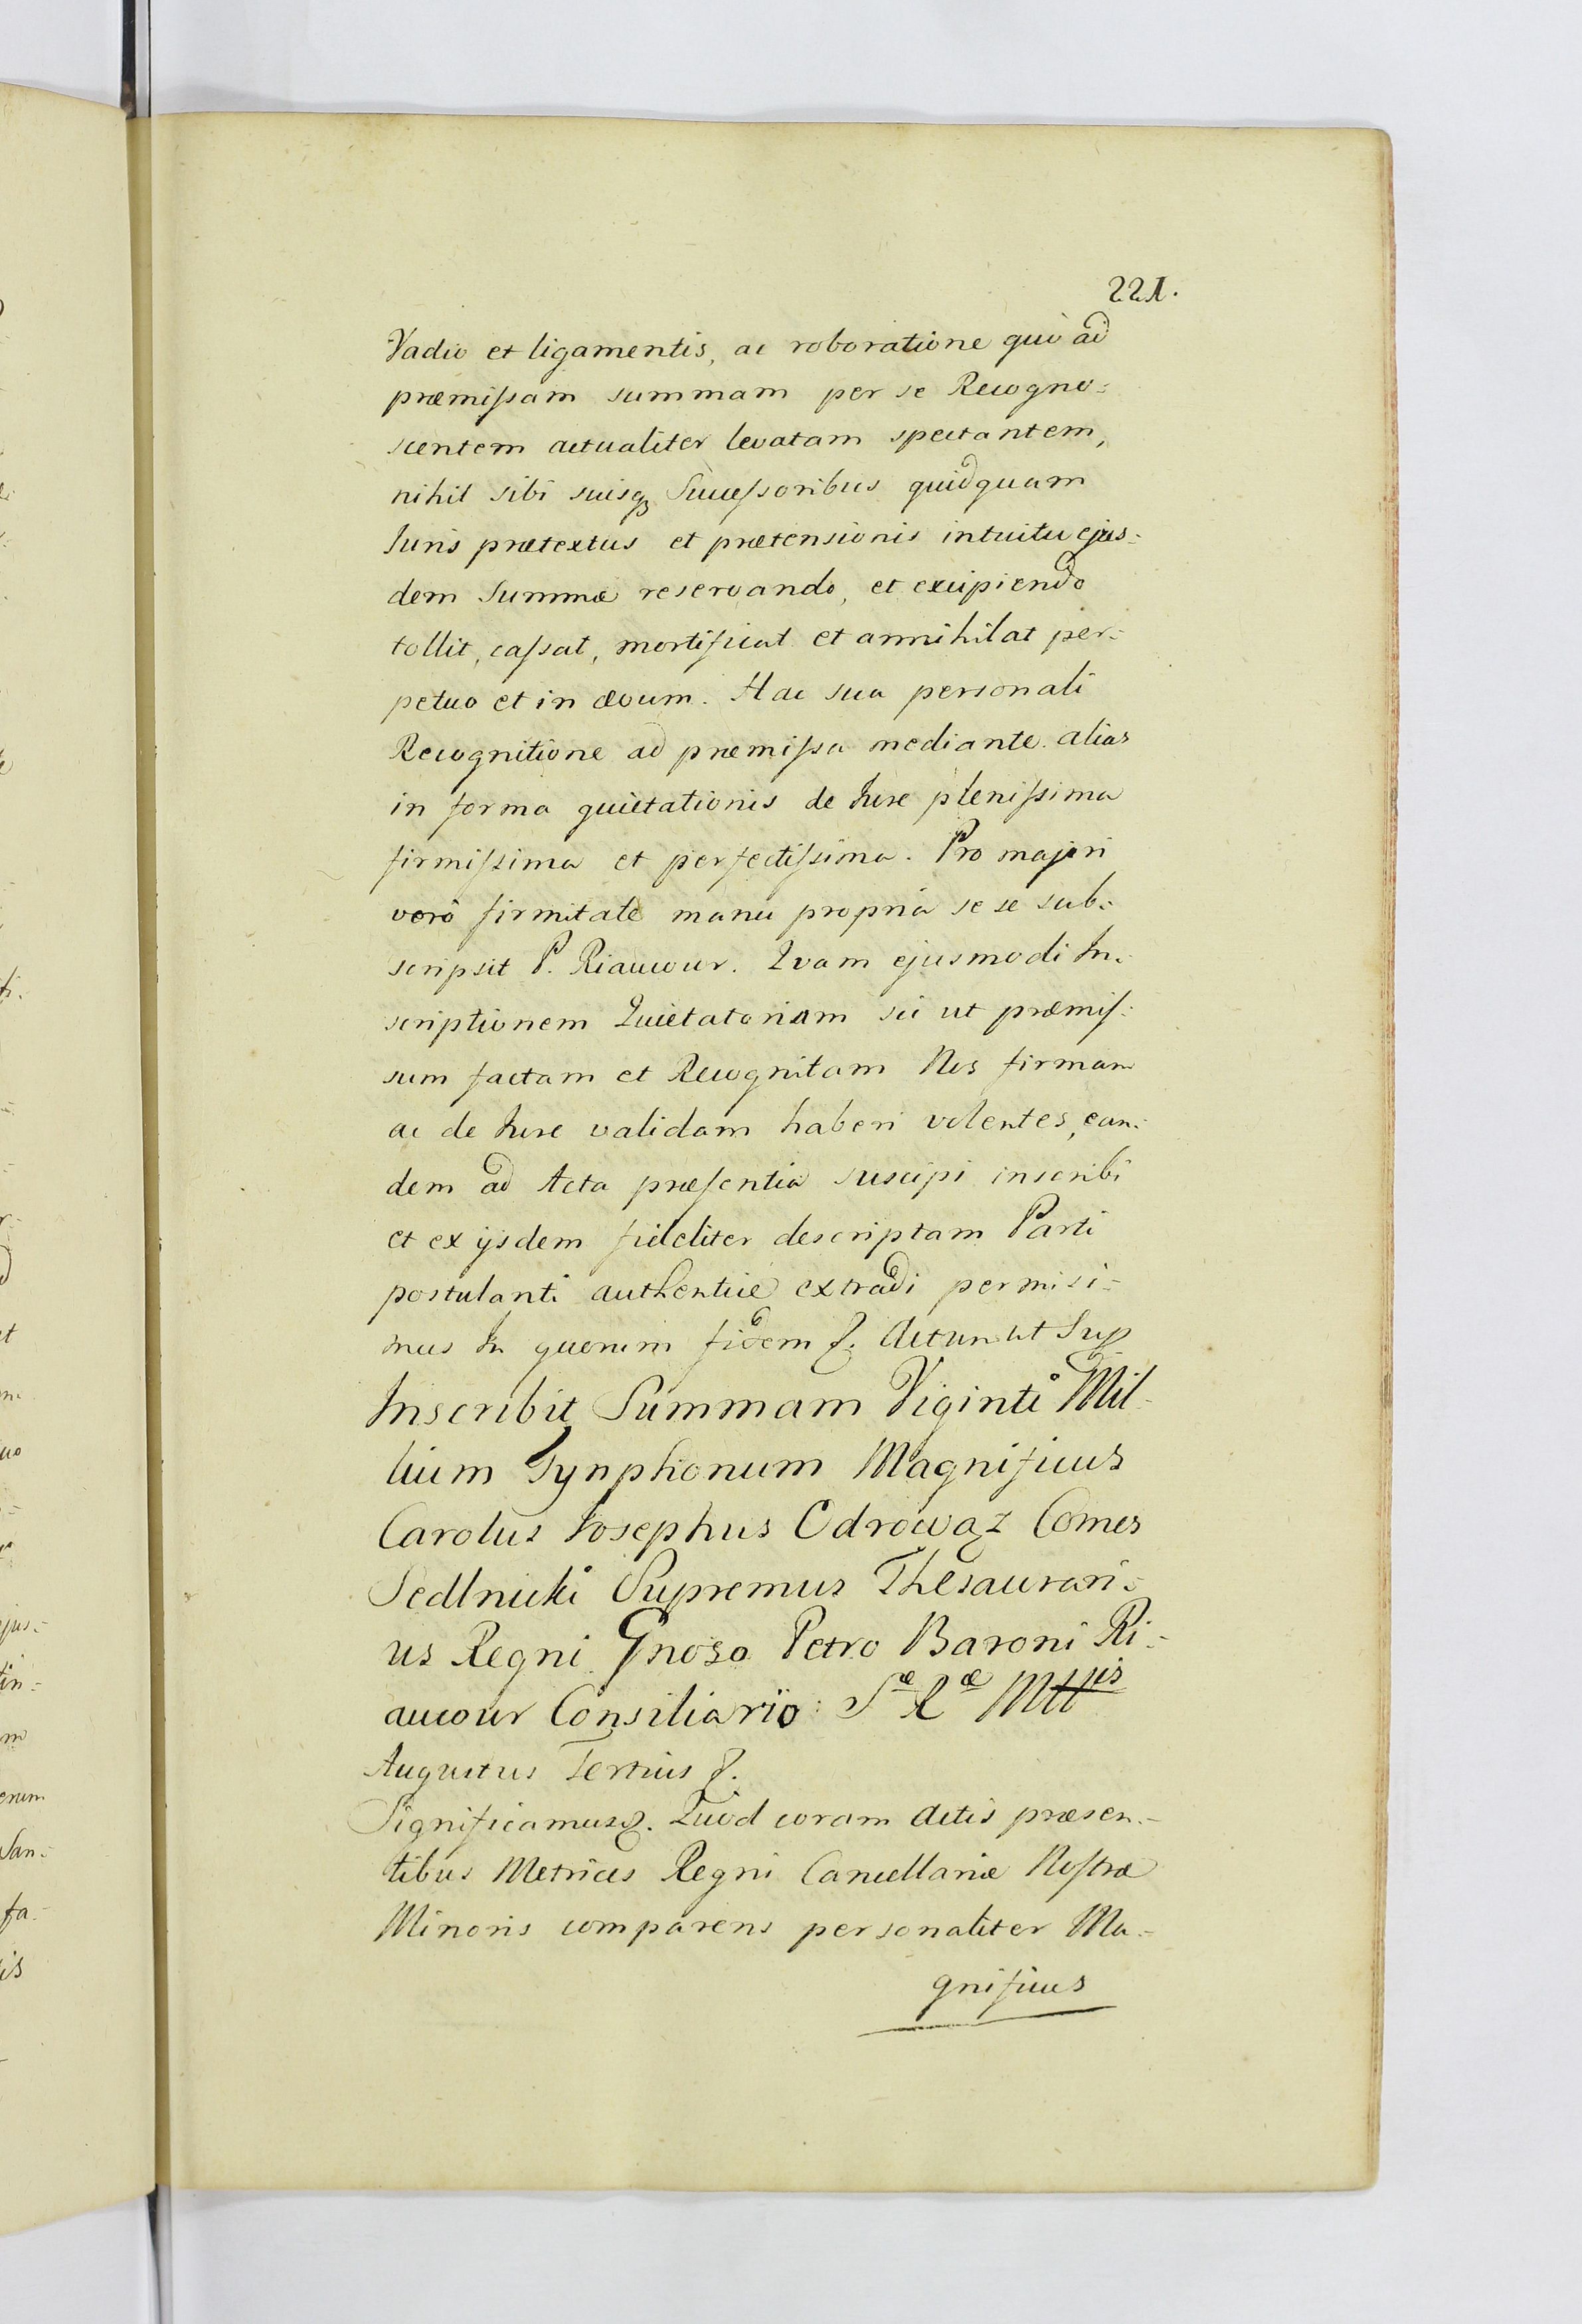 221.
Vadio et ligamentis, ac roboratione quò ad
præmissam summam per se Recogno-
scentem actualiter levatam spectantem,
nihil sibi suisq Successoribus quidquam
Iuris prætextus et prætensionis intuitu ejus-
dem Summæ reservando, et excipiendo
tollit, cassat, mortificat et annihilat per-
petuo et in ævum. Hac sua personali
Recognitione ad præmissa mediante alias
in forma quietationis de Iure plenissima
firmissima et perfectissima. Pro majori
verò firmitate manu propria se se sub-
scripsit P. Riaucour. Qvam ejusmodi In-
scriptionem Quietatoriam sic ut præmis-
sum factam et Recognitam Nos firmam
ac de Iure validam haberi volentes, ean-
dem ad Acta præsentia suscipi inscribi
et ex ijsdem fideliter descriptam Parti
postulanti authentice extradi permisi-
mus In quorum fidem &. Actum ut Sup
Inscribit Summam Viginti Mil-
lium Tynphonum Magnificus
Carolus Iosephus Odrowąz Comes
Sedlnicki Supremus Thesaurari-
us Regni Gnoso Petro Baroni Ri-
aucour Consiliario Sæ Ræ Mttis
Augustus Tertius &.
Significamus &. Quod coram Actis præsen-
tibus Metrices Regni Cancellariæ Nostræ
Minoris comparens personaliter Ma-
gnificus